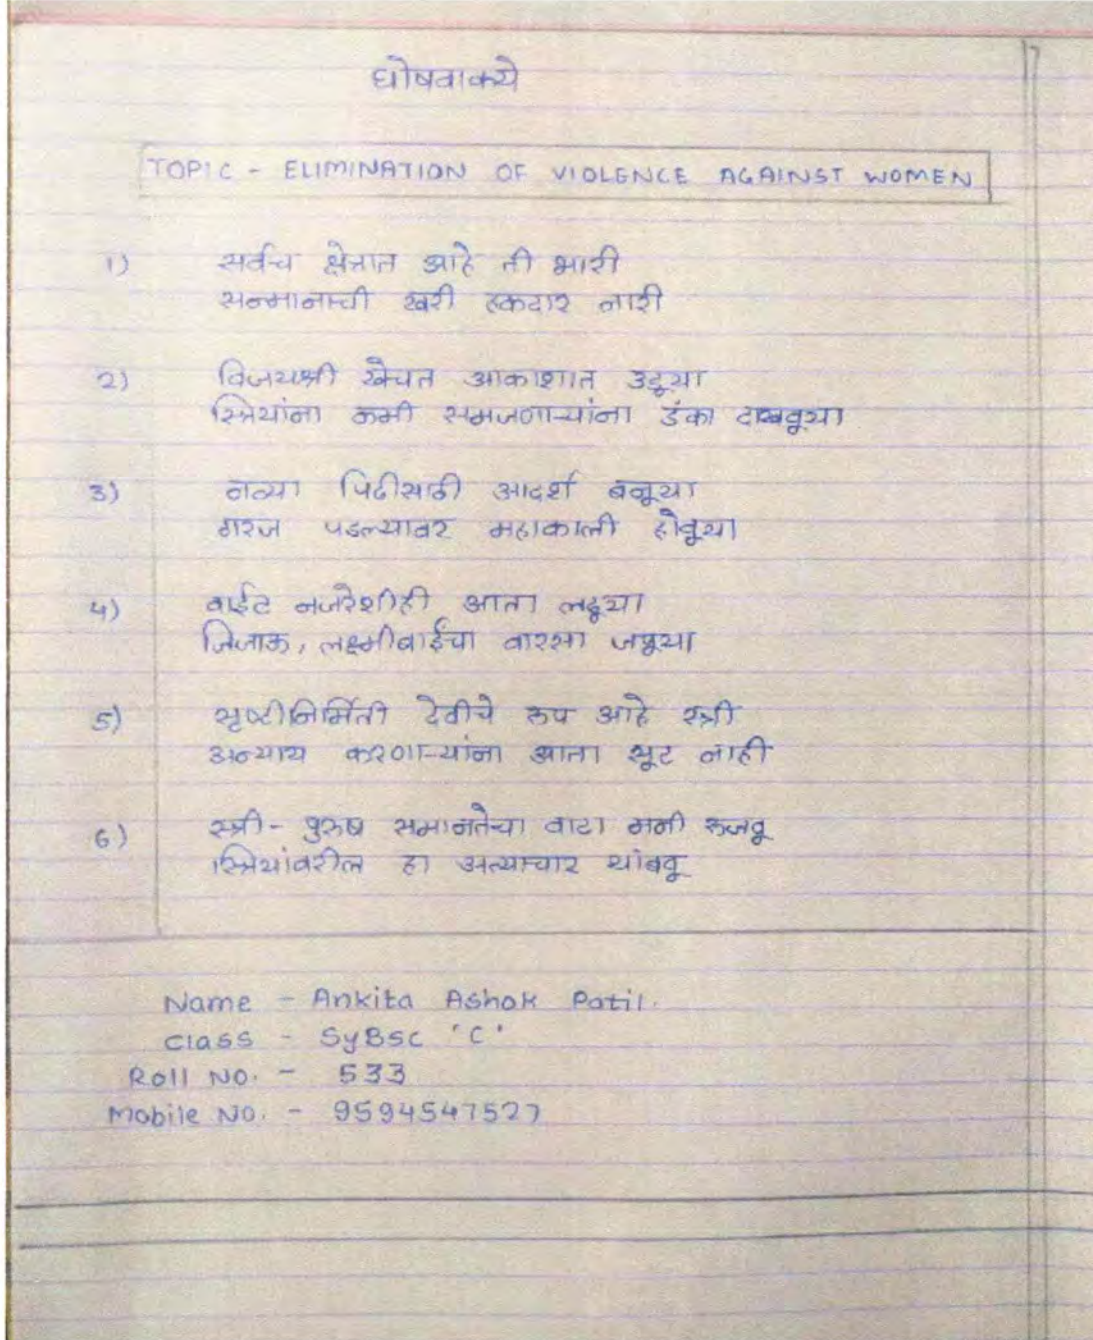 घोषवाक्ये
TOPIC - ELIMINATION OF VIOLENCE AGAINST WOMEN
1) सर्वच क्षेत्रात आहे ती भारी
सन्मानाची खरी हकदार नारी
2) विजयश्री खेचत आकाशात उडूया
स्त्रियांना कमी समजणाऱ्यांना डंका दाखवूया
3) नव्या पिढीसाठी आदर्श बनूया
गरज पडल्यावर महाकाली होवूया
4) वाईट नजरेशीही आता लढूया
जिजाऊ, लक्ष्मीबाईंचा वारसा जपूया
5) सृष्टीनिर्मिती देवीचे रूप आहे स्त्री
अन्याय करणाऱ्यांना आता सूट नाही
6) स्त्री- पुरुष समानतेचा वाटा मनी रूजवू
स्त्रियांवरील हा अत्याचार थांबवू
Name - Ankita Ashok Patil.
Class - SyBsc 'C'
Roll No. - 533
Mobile No. - 9594547527